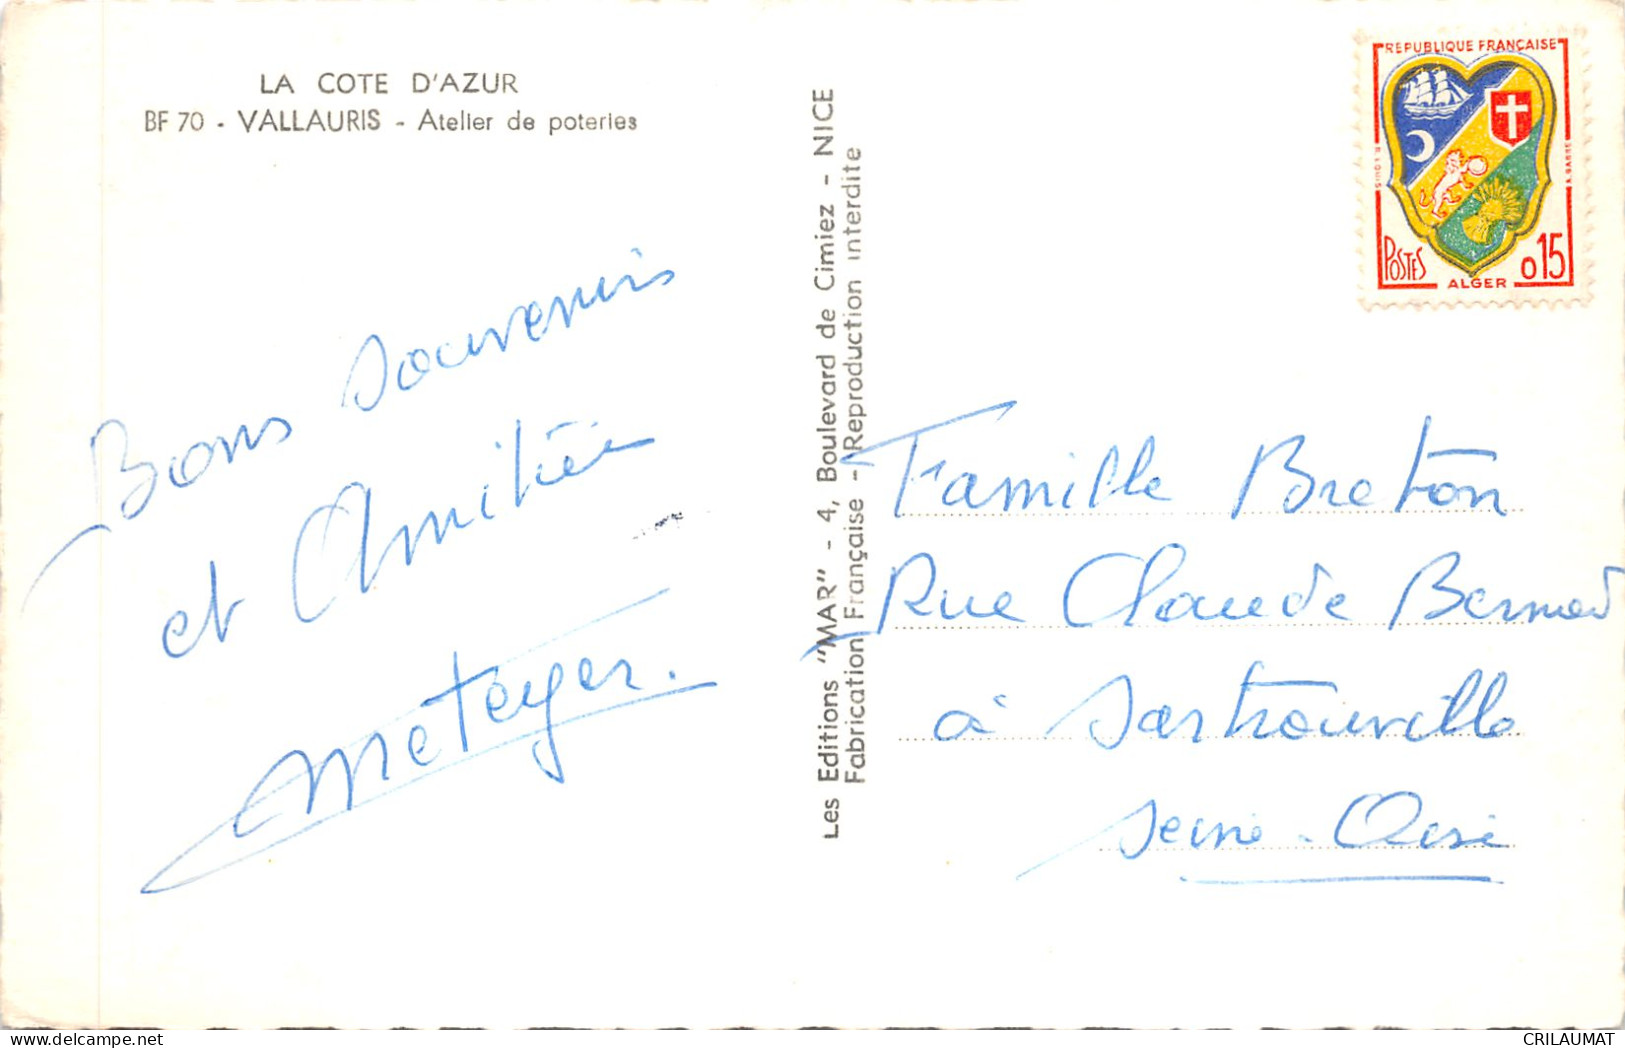 LA COTE D'AZUR
BF 70 - VALLAURIS - Atelier de poteries
Bons souvenirs
et Amitiés
Meteyer.
Les Editions "MAR" - 4, Boulevard de Cimiez - NICE
Fabrication Française - Reproduction interdite
REPUBLIQUE FRANÇAISE
POSTES
ALGER
0,15
Famille Breton
Rue Claude Bernard
à Sartrouville
Seine-Oise
CRILAUMAT